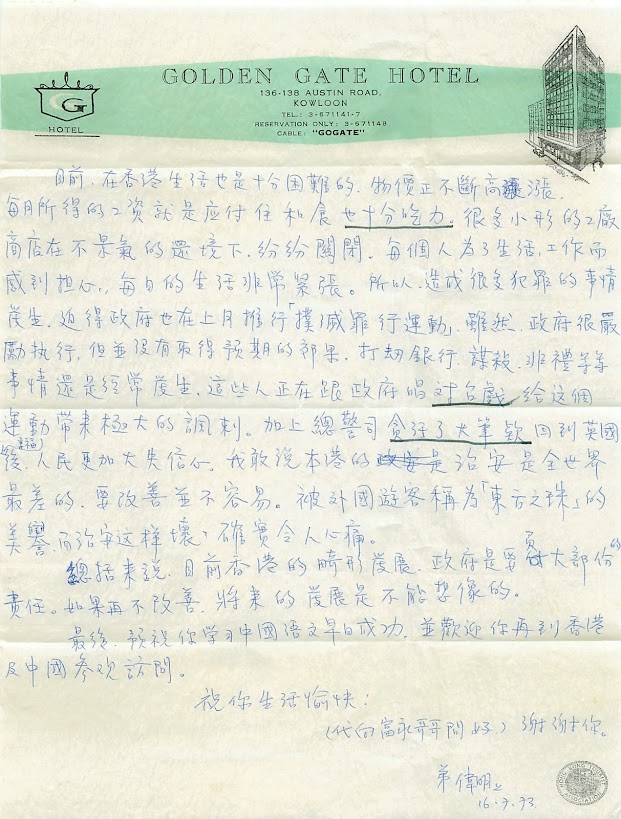 GOLDEN GATE HOTEL
136-138 AUSTIN ROAD,
KOWLOON
TEL.: 3-671141-7
RESERVATION ONLY: 3-671148
CABLE: "GOGATE"
G
HOTEL
目前，在香港生活也是十分困難的，物價正不斷高漲，
每月所得的工資就是应付住和食也十分吃力。很多小形的工廠
商店在不景氣的環境下，紛紛關閉，每個人為了生活，工作而
感到担心，每日的生活非常緊張。所以，造成很多犯罪的事情
發生，迫得政府也在上月推行「撲滅罪行運動」，雖然，政府很嚴
勵执行，但並沒有取得預期的効果，打劫銀行，謀殺，非禮等等
事情還是經常發生，這些人正在跟政府唱对台戲，给這個
運動帶來極大的諷刺。加上總警司貪污了大筆欵回到英國
後，人民更加大失信心，我敢说本港的治安是全世界
最差的，要改善並不容易。被外國遊客稱為「東方之珠」的
美譽，而治安这样壞，確實令人心痛。
總括来說，目前香港的畸形發展，政府是要負大部份的
責任。如果再不改善，將来的發展是不能想像的。
最後，預祝你学习中國语文早日成功，並歡迎你再到香港
及中國参观訪問。
祝你生活愉快！
（代向富永哥哥問好）谢谢你。
弟偉明上
16.7.73.
HONG KONG TOURIST ASSOCIATION